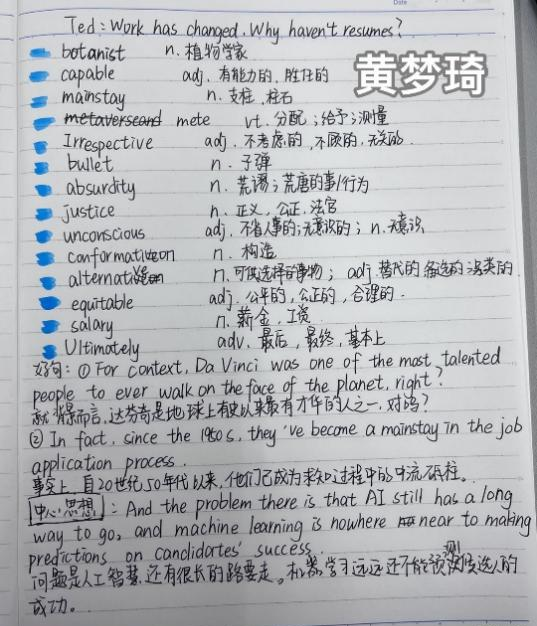 Date
Ted: Work has changed. Why haven't resumes?
黄梦琦
botanist n. 植物学家
capable adj. 有能力的, 胜任的
mainstay n. 支柱, 柱石
metaverseand mete vt. 分配; 给予; 测量
Irrespective adj. 不考虑的, 不顾的, 无关的.
bullet n. 子弹
absurdity n. 荒谬; 荒唐的事/行为
justice n. 正义, 公正, 法官
unconscious adj. 不省人事的; 无意识的; n. 无意识
conformation n. 构造
alternative n. 可供选择的事物; adj. 替代的 备选的 另类的
equitable adj. 公平的, 公正的, 合理的.
salary n. 薪金, 工资
Ultimately adv. 最后, 最终, 基本上
好句: ① For context, Da Vinci was one of the most talented
people to ever walk on the face of the planet, right?
就背景而言, 达芬奇是地球上有史以来最有才华的人之一, 对吗?
② In fact, since the 1950s, they 've become a mainstay in the job
application process.
事实上, 自20世纪50年代以来, 他们已成为求职过程中的中流砥柱.
中心思想: And the problem there is that AI still has a long
way to go, and machine learning is nowhere near to making
predictions on candidates' success.
问题是人工智慧还有很长的路要走。机器学习远远还不能预测候选人的
成功。